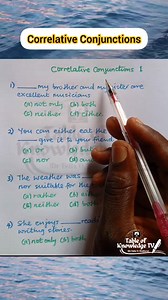 Correlative Conjunctions
Correlative Conjunctions 1
1) ____ my brother and sister are
excellent musicians
(a) not only (b) both
(c) neither (d) either
2) You can either eat the
give it to your friend
(a) or (b)
(c) nor (d)
3) The weather was
nor suitable for
(a) rather (b)
(c) neither (d)
4) She enjoys ____
writing
(a) not only (b) both
Table of
Knowledge TV